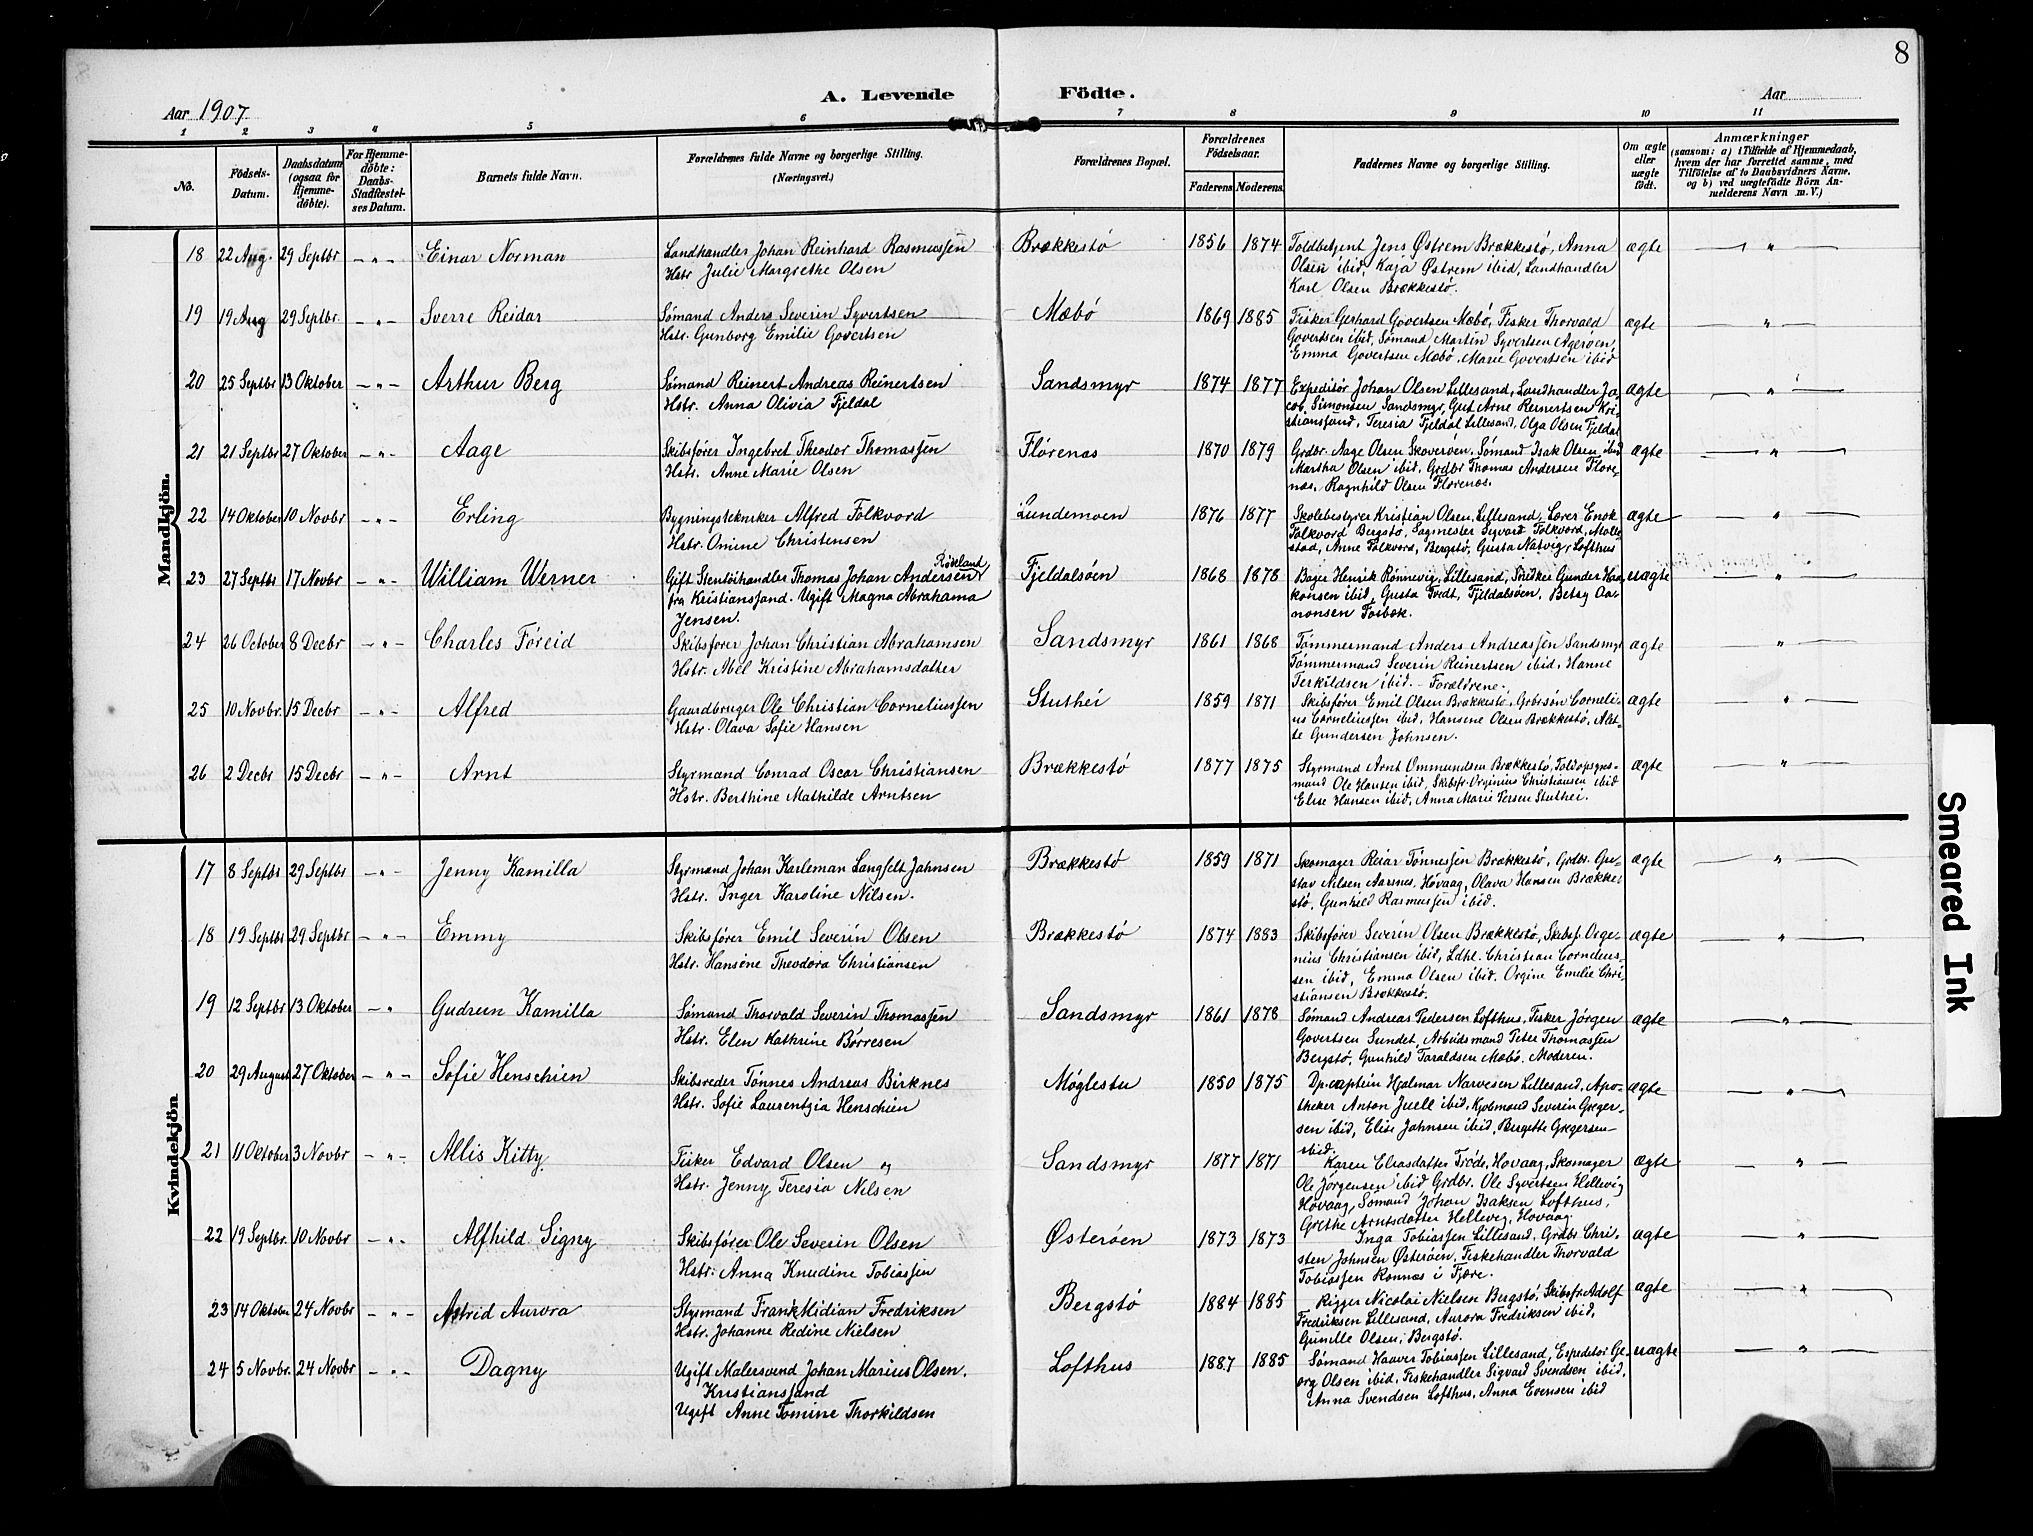 8
Aar 1907. A. Levende Födte. Aar
1 2 3 4 5 6 7 8 9 10 11
No.
Födsels-Datum.
Daabsdatum (ogsaa for Hjemme-døbte).
For Hjemme-døbte: Daabs-Stadfæstel-ses Datum.
Barnets fulde Navn.
Forældrenes fulde Navne og borgerlige Stilling. (Næringsvei.)
Forældrenes Bopæl.
Forældrenes Födselsaar.
Faderens. Moderens.
Faddernes Navne og borgerlige Stilling.
Om ægte eller uægte födt.
Anmærkninger
(saasom: a) i Tilfælde af Hjemmedaab, hvem der har forrettet samme, med Tilföielse af to Daabsvidners Navne, og b) ved uægtefödte Börn An-melderens Navn m. V.)
Mandkjön.
18 22 Aug. 29 Septbr -"- Einar Norman
Landhandler Johan Reinhard Rasmussen
Hstr Julie Margrethe Olsen
Brækkestö 1856 1874
Toldbetjent Jens Østrem Brækkestö, Anna
Olsen ibid, Kaja Østrem ibid, Landhandler
Karl Olsen Brækkestö.
ægte "
19 19 Aug 29 Septbr. -"- Sverre Reidar
Sømand Anders Severin Syvertsen
Hstr. Gunborg Emilie Govertsen
Mæbö 1869 1885
Fisker Gerhard Govertsen Mæbö, Fisker Thorvald
Govertsen ibid, Sømand Martin Syvertsen Agerøen,
Emma Govertsen Mæbö, Marie Govertsen ibid
ægte "
20 25 Septbr 13 Oktober -"- Arthur Berg
Sømand Reinert Andreas Reinertsen
Hstr. Anna Olivia Fjeldal
Sandsmyr 1874 1877
Expeditör Johan Olsen Lillesand, Landhandler Ja-
cob Simonsen Sandsmyr, Gut Arne Reinertsen Kri-
stianssand, Teresia Fjeldal Lillesand, Olga Olsen Fjeldal
ægte "
21 21 Septbr 27 Oktober -"- Aage
Skibsfører Ingebret Theodor Thomassen
Hstr. Anne Marie Olsen
Flørenæs 1870 1879
Grdbr. Aage Olsen Skoverøen, Sømand Isak Olsen ibid
Martha Olsen ibid, Grdbr Thomas Andersen Flore-
næs, Ragnhild Olsen Florenæs.
ægte "
22 14 Oktober 10 Novbr -"- Erling
Bygningstekniker Alfred Folkvord
Hstr. Omine Christensen
Lundemoen 1876 1877
Skolebestyrer Kristian Olsen, Lillesand, Lærer Enok
Folkvord Bergstö, Sagmester Sigvard Folkvord, Molle-
stad, Anne Folkvord, Bergstö, Gusta Natvig, Lofthus
ægte "
23 27 Septbr 17 Novbr -"- William Werner
Røseland
Gift Stentöihandler Thomas Johan Andersen
fra Kristianssand. Ugift Magna Abrahama
Jensen.
Fjeldalsöen 1868 1878
Bager Henrik Rönnevig, Lillesand, Snidker Gunder Haa-
konsen ibid, Gusta Tvedt, Fjeldalsöen, Betsy Aa-
nonsen Fosbæk.
uægte "
24 26 October 8 Decbr -"- Charles Föreid
Skibsfører Johan Christian Abrahamsen
Hstr. Abel Kristine Abrahamsdatter
Sandsmyr 1861 1868
Tømmermand Anders Andreassen Sandsmyr
Tømmermand Severin Reinertsen ibid, Hanne
Terkildsen ibid. - Forældrene.
ægte "
25 10 Novbr. 15 Decbr -"- Alfred
Gaardbruger Ole Christian Corneliussen
Hstr. Olava Sofie Hansen
Stuthei 1859 1871
Skibsfører Emil Olsen Brækkestö, Grbrsön Corneli-
us Corneliussen ibid, Hansene Olsen Brækkestö,
Gundersen Johnsen.
ægte "
26 2 Decbr 15 Decbr -"- Arnt
Styrmand Conrad Oscar Christiansen
Hstr. Berthine Mathilde Arntsen
Brækkestö 1877 1875
Styrmand Arnt Ommundsen Brækkestö, Toldopsyns-
mand Ole Hansen ibid, Skibsfr Orginius Christiansen ibid
Elise Hansen ibid, Anna Marie Tersen Stuthei.
ægte "
Kvindekjön
17 8 Septbr 29 Septbr -"- Jenny Kamilla
Styrmand Johan Karleman Langfelt Jahnsen
Hstr. Inger Karoline Nilsen.
Brækkestö 1859 1871
Skomager Reiar Tönnessen Brækkestö, Grdbr. Gu-
stav Nilsen Aasnes, Høvaag, Olava Hansen Brække
stö, Gunhild Rasmussen ibid.
ægte "
18 19 Septbr 29 Septbr -"- Emmy
Skibsfører Emil Severin Olsen
Hstr. Hansine Theodora Christiansen
Brækkestö 1874 1883
Skibsfører Severin Olsen Brækkestö, Skibsf. Orge-
nius Christiansen ibid, Ldhl. Christian Cornelius-
sen ibid, Emma Olsen ibid. Orgine Emelie Chri-
stiansen Brækkestö.
ægte "
19 12 Septbr 13 Oktober -" Gudrun Kamilla
Sømand Thorvald Severin Thomassen
Hstr. Elen Kathrine Börresen
Sandsmyr 1861 1878
Sømand Andreas Pedersen Lofthus, Fisker Jörgen
Govertsen Sundet, Arbeidsmand Peter Thomassen
Bergstö, Gunhild Taraldsen Mæbö. Moderen.
ægte "
20 29 August 27 Oktober -"- Sofie Henschien
Skibsreder Tönnes Andreas Birknes
Hstr. Sofie Laurentzia Henschien
Möglestu 1850 1875
Dp.captein Hjalmar Narvesen Lillesand, Apo-
theker Anton Juell ibid, Kjøbmand Severin Greger-
sen ibid, Elise Johnsen ibid, Bergette Gregersen
ibid.
ægte "
21 11 Oktober 3 Novbr -"- Allis Kitty
Fisker Edvard Olsen og
Hstr. Jenny Teresia Nilsen
Sandsmyr 1877 1871
Karen Eliasdatter Trøde, Hovaag, Skomager
Ole Jörgensen ibid Grdbr. Ole Syvertsen Hellevig
Hovaag, Sømand Johan Isaksen Lofthus,
Grethe Arntsdatter Hellevig, Hovaag.
ægte "
22 19 Septbr. 10 Novbr -"- Alfhild Signy
Skibsfører Ole Severin Olsen
Hstr: Anna Knudine Tobiassen
Østeröen 1873 1873
Inga Tobiassen Lillesand, Grdbr Chri-
sten Johnsen Østeröen, Fiskehandler Thorvald
Tobiassen Rönnæs i Fjære.
ægte "
23 14 Oktober 24 Novbr -"- Astrid Aurora
Styrmand Frank Midian Fredriksen
Hstr. Johanne Redine Nielsen
Bergstö 1884 1885
Rigger Nicolai Nielsen Bergstö, Skibsfr Adolf
Fredriksen Lillesand, Aurora Fredriksen ibid,
Gunelle Olsen, Bergstö.
ægte "
24 5 Novbr. 24 Novbr -"- Dagny
Ugift Malersvend Johan Marius Olsen.
Kristianssand
Ugift Anne Tomine Thorkildsen
Lofthus 1887 1885
Sömand Haaver Tobiassen Lillesand, Expeditör Ge-
org Olsen ibid, Fiskehandler Sigvald Svendsen ibid,
Anna Svendsen Lofthus, Anna Evensen ibid
uægte "
Smeared Ink